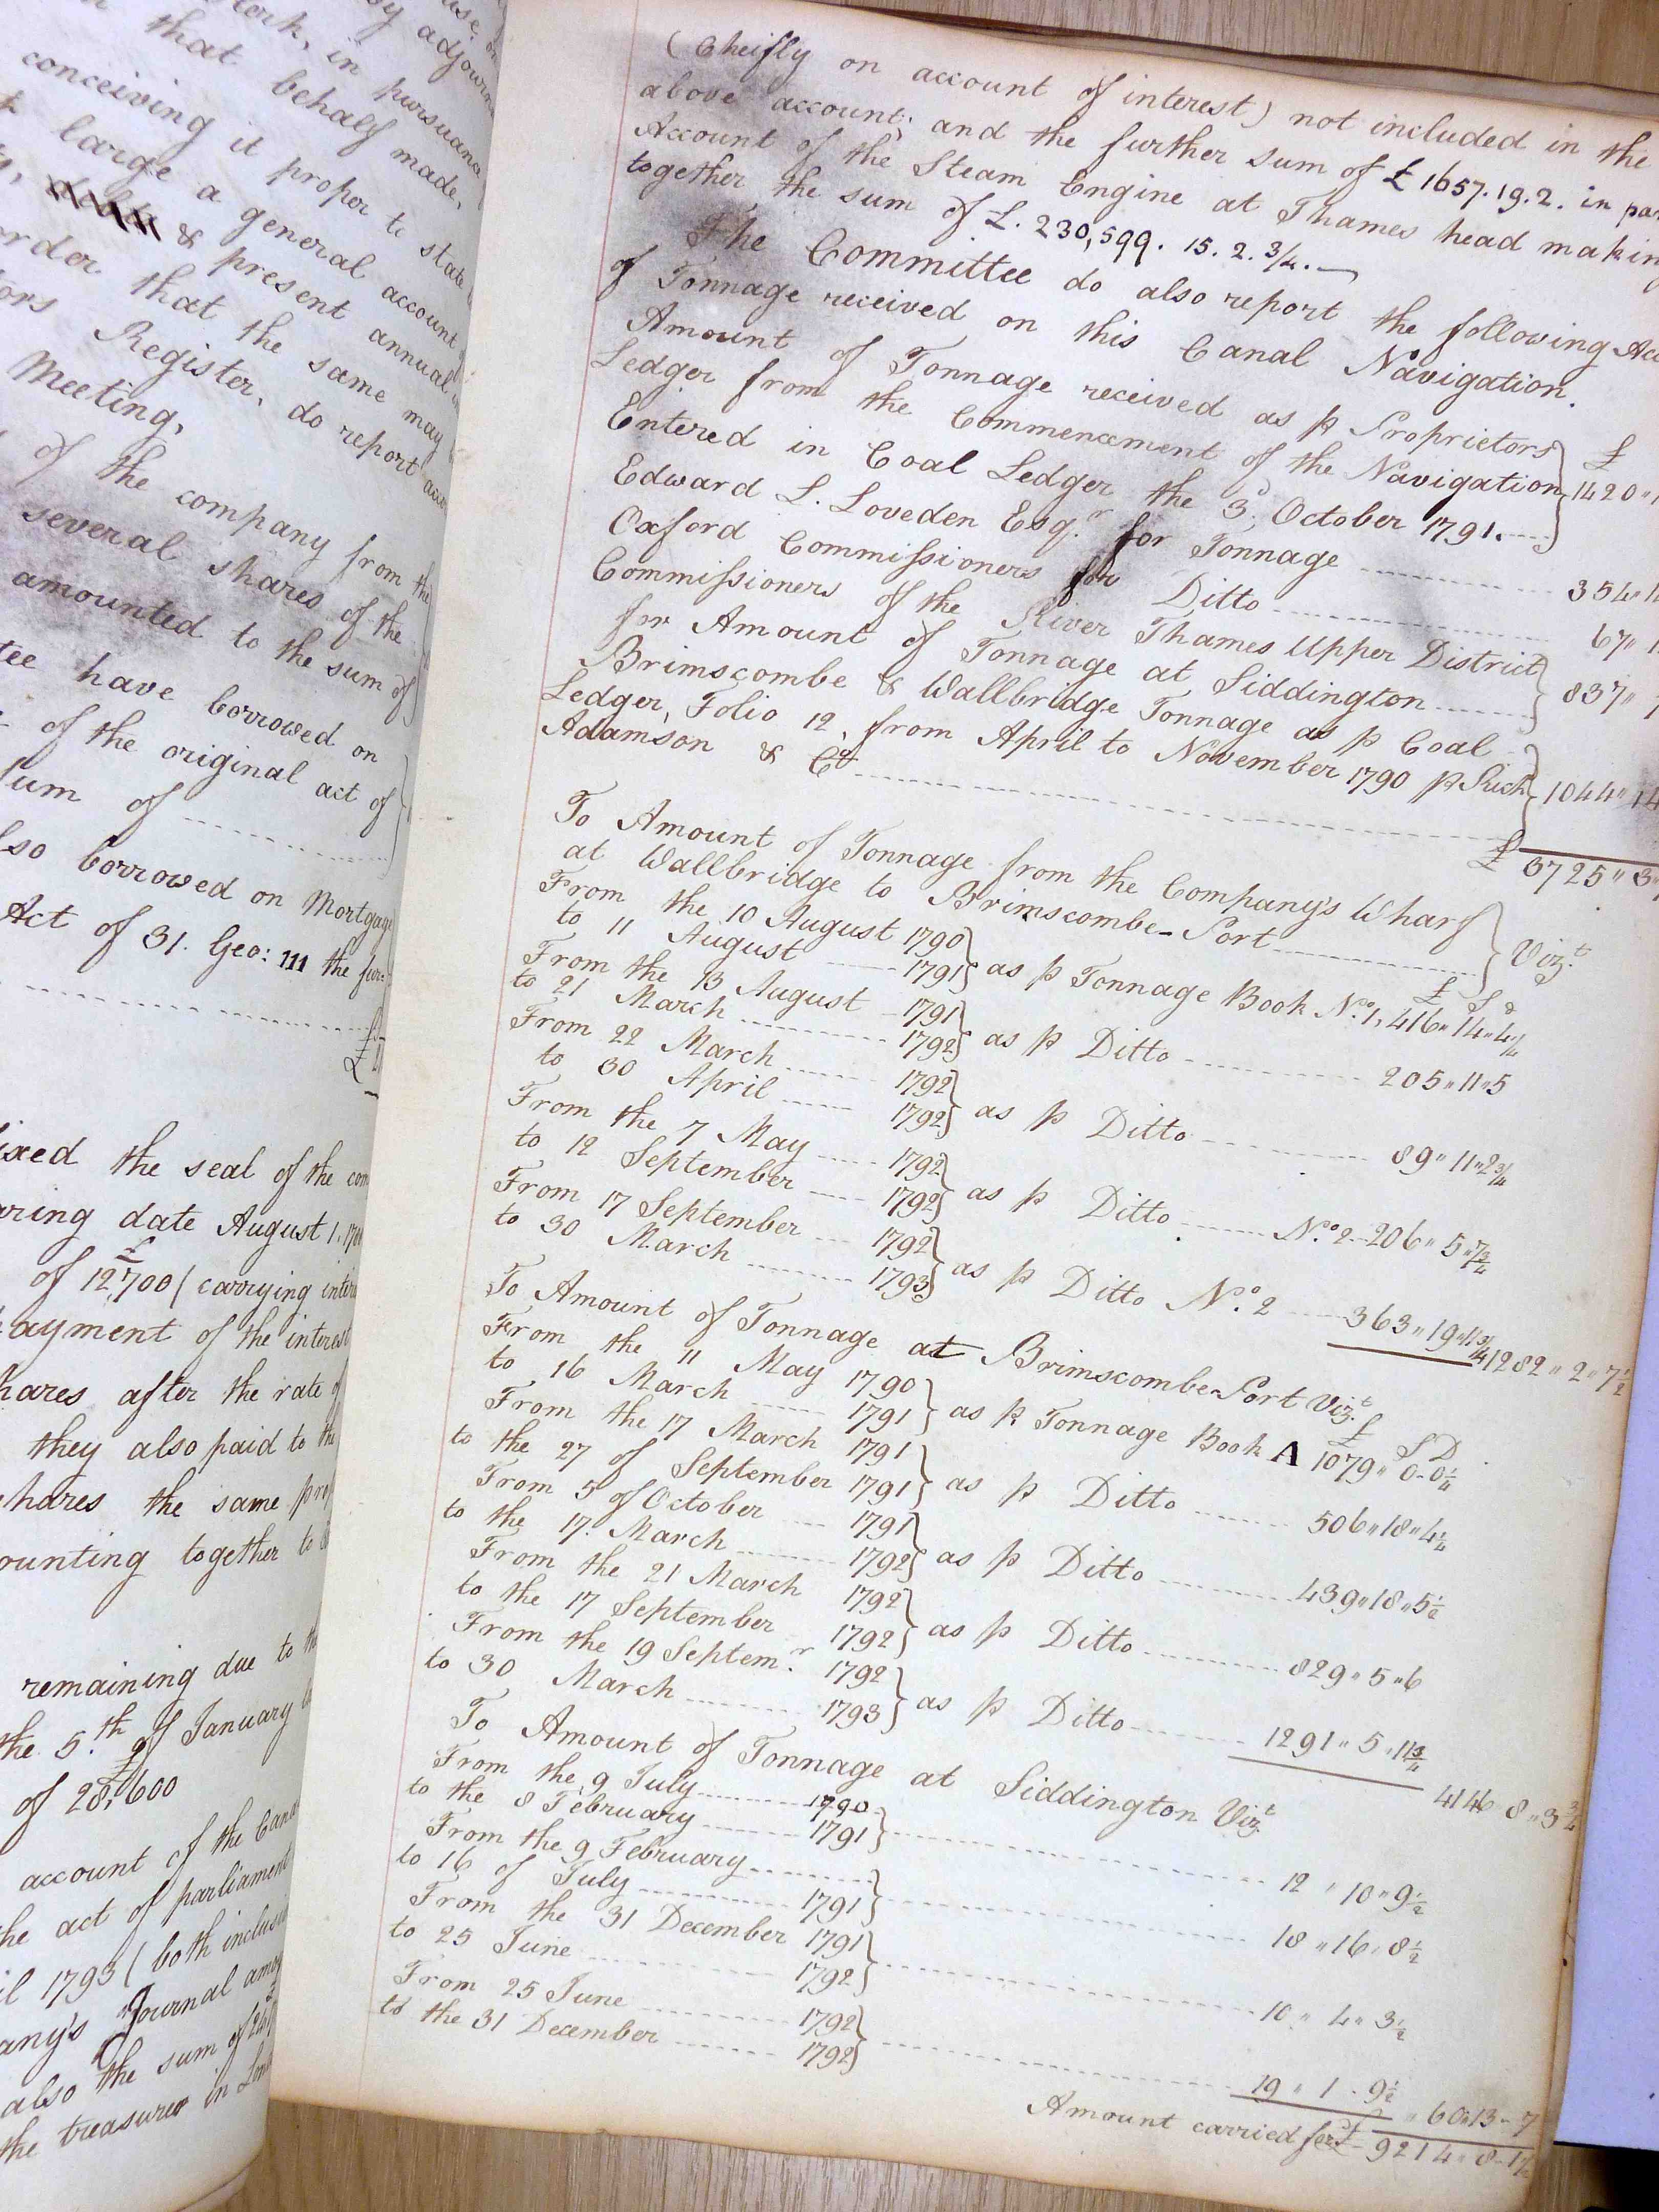 by adjourn
in pursuana
that behalf made,
conceiving it proper to state
large a general account
& present annual
order that the same may
Register, do report
Meeting,
of the company from the
several shares of the
amounted to the sum of
have borrowed on
of the original act of
sum of
borrowed on Mortgage
Act of 31. Geo: III the
the seal of the com
date August 1.
of 12,700 £ (carrying
payment of the interest
shares after the rate of
they also paid to the
shares the same
together to
remaining due to the
the 5.th of January
of 28,600 £
account of the Cana
the act of parliament
1793 (both inclus
Journal
also the sum of
the treasurer in
(Cheifly on account of interest) not included in the
above account; and the further sum of £1657.19.2. in par
Account of the Steam Engine at Thames head makin
together the sum of £. 230,599. 15. 2. 3/4.
The Committee do also report the following Acc
of Tonnage received on this Canal Navigation.
Amount of Tonnage received as p Proprietors £
Ledger from the Commencement of the Navigation 1420"1
Entered in Coal Ledger the 3.d October 1791.
Edward L. Loveden Esq.r for Tonnage 354"1
Oxford Commissioners for Ditto 67"1
Commissioners of the River Thames Upper District
for Amount of Tonnage at Siddington 837"
Brimscombe & Wallbridge Tonnage as p Coal
Ledger, Folio 12, from April to November 1790 p Such 1044"14
Adamson & Co
£ 3725"3"
To Amount of Tonnage from the Company's Wharf
at Wallbridge to Brimscombe-Port Viz.t
From the 10 August 1790
to 11 August 1791 as p Tonnage Book N.o 1, £ S d 416"14"4 1/4
From the 13 August 1791
to 21 March 1792 as p Ditto 205"11"5
From 22 March 1792
to 30 April 1792 as p Ditto 89"11"2 3/4
From the 7 May 1792
to 12 September 1792 as p Ditto N.o 2 206"5"7 3/4
From 17 September 1792
to 30 March 1793 as p Ditto N.o 2 363"19"11 3/4 1282"2"7 1/2
To Amount of Tonnage at Brimscombe-Port Viz.t
From the 11 May 1790 £ S D
to 16 March 1791 as p Tonnage Book A 1079"0-0 1/4
From the 17 March 1791
to the 27 of September 1791 as p Ditto 506"18"4 1/4
From 5 of October 1791
to the 17 March 1792 as p Ditto 439"18"5 1/2
From the 21 March 1792
to the 17 September 1792 as p Ditto 829"5"6
From the 19 Septem.r 1792
to 30 March 1793 as p Ditto 1291"5"11 3/4
4146 8"3 3/4
To Amount of Tonnage at Siddington Viz.t
From the 9 July 1790
to the 8 February 1791 12"10"9 1/2
From the 9 February
to 16 of July 1791 18"16"8 1/2
From the 31 December 1791
to 25 June 1792 10"4"3 1/2
From 25 June 1792
to the 31 December 1792 19"1-9 1/2
"60"13-7
Amount carried for.d 9214"8-1 1/2